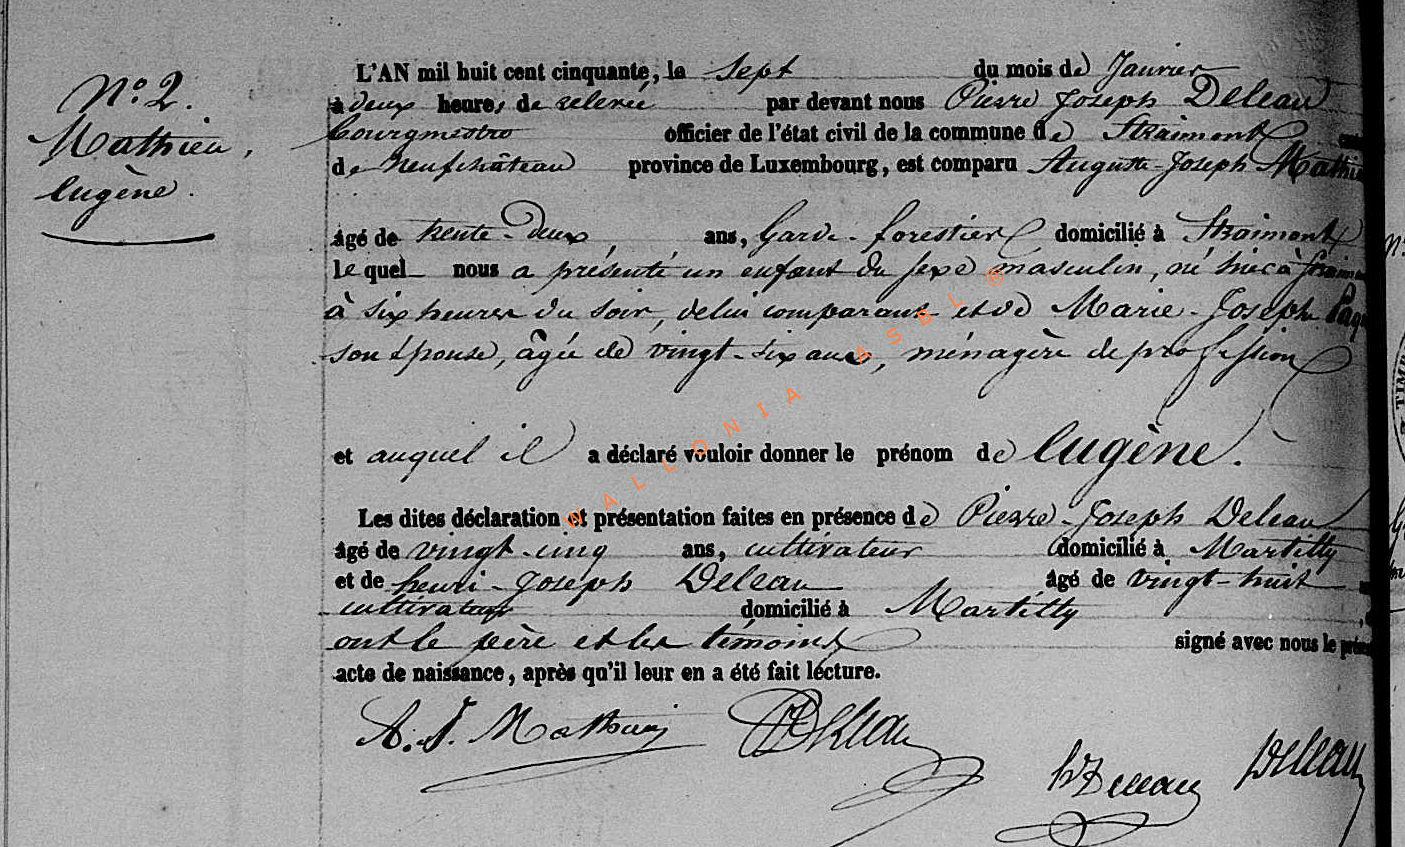 N.º 2.
Mathieu,
Eugène.
L'AN mil huit cent cinquante, le sept du mois de Janvier
à deux heures de relevée par devant nous Pierre Joseph Deleau
bourgmestre officier de l'état civil de la commune de Straimont
de Neufchâteau province de Luxembourg, est comparu Auguste-Joseph Mathie
âgé de trente-deux, ans, Garde-forestier domicilié à Straimont
lequel nous a présenté un enfant du sexe masculin, né hier à Straimon
à six heures du soir, de lui comparant et de Marie-Joseph Paq
son épouse, âgée de vingt-six ans, ménagère de profession
et auquel il a déclaré vouloir donner le prénom de Eugène.
Les dites déclaration et présentation faites en présence de Pierre-Joseph Deleau
âgé de vingt-cinq ans, cultivateur domicilié à Martilly
et de henri-Joseph Deleau âgé de vingt-huit
cultivateur domicilié à Martilly
ont le père et les témoins signé avec nous le prése
acte de naissance, après qu'il leur en a été fait lecture.
A. J. Mathieu Deleau
Deleau Deleau
WALLONIA ASBL ®
TIMB